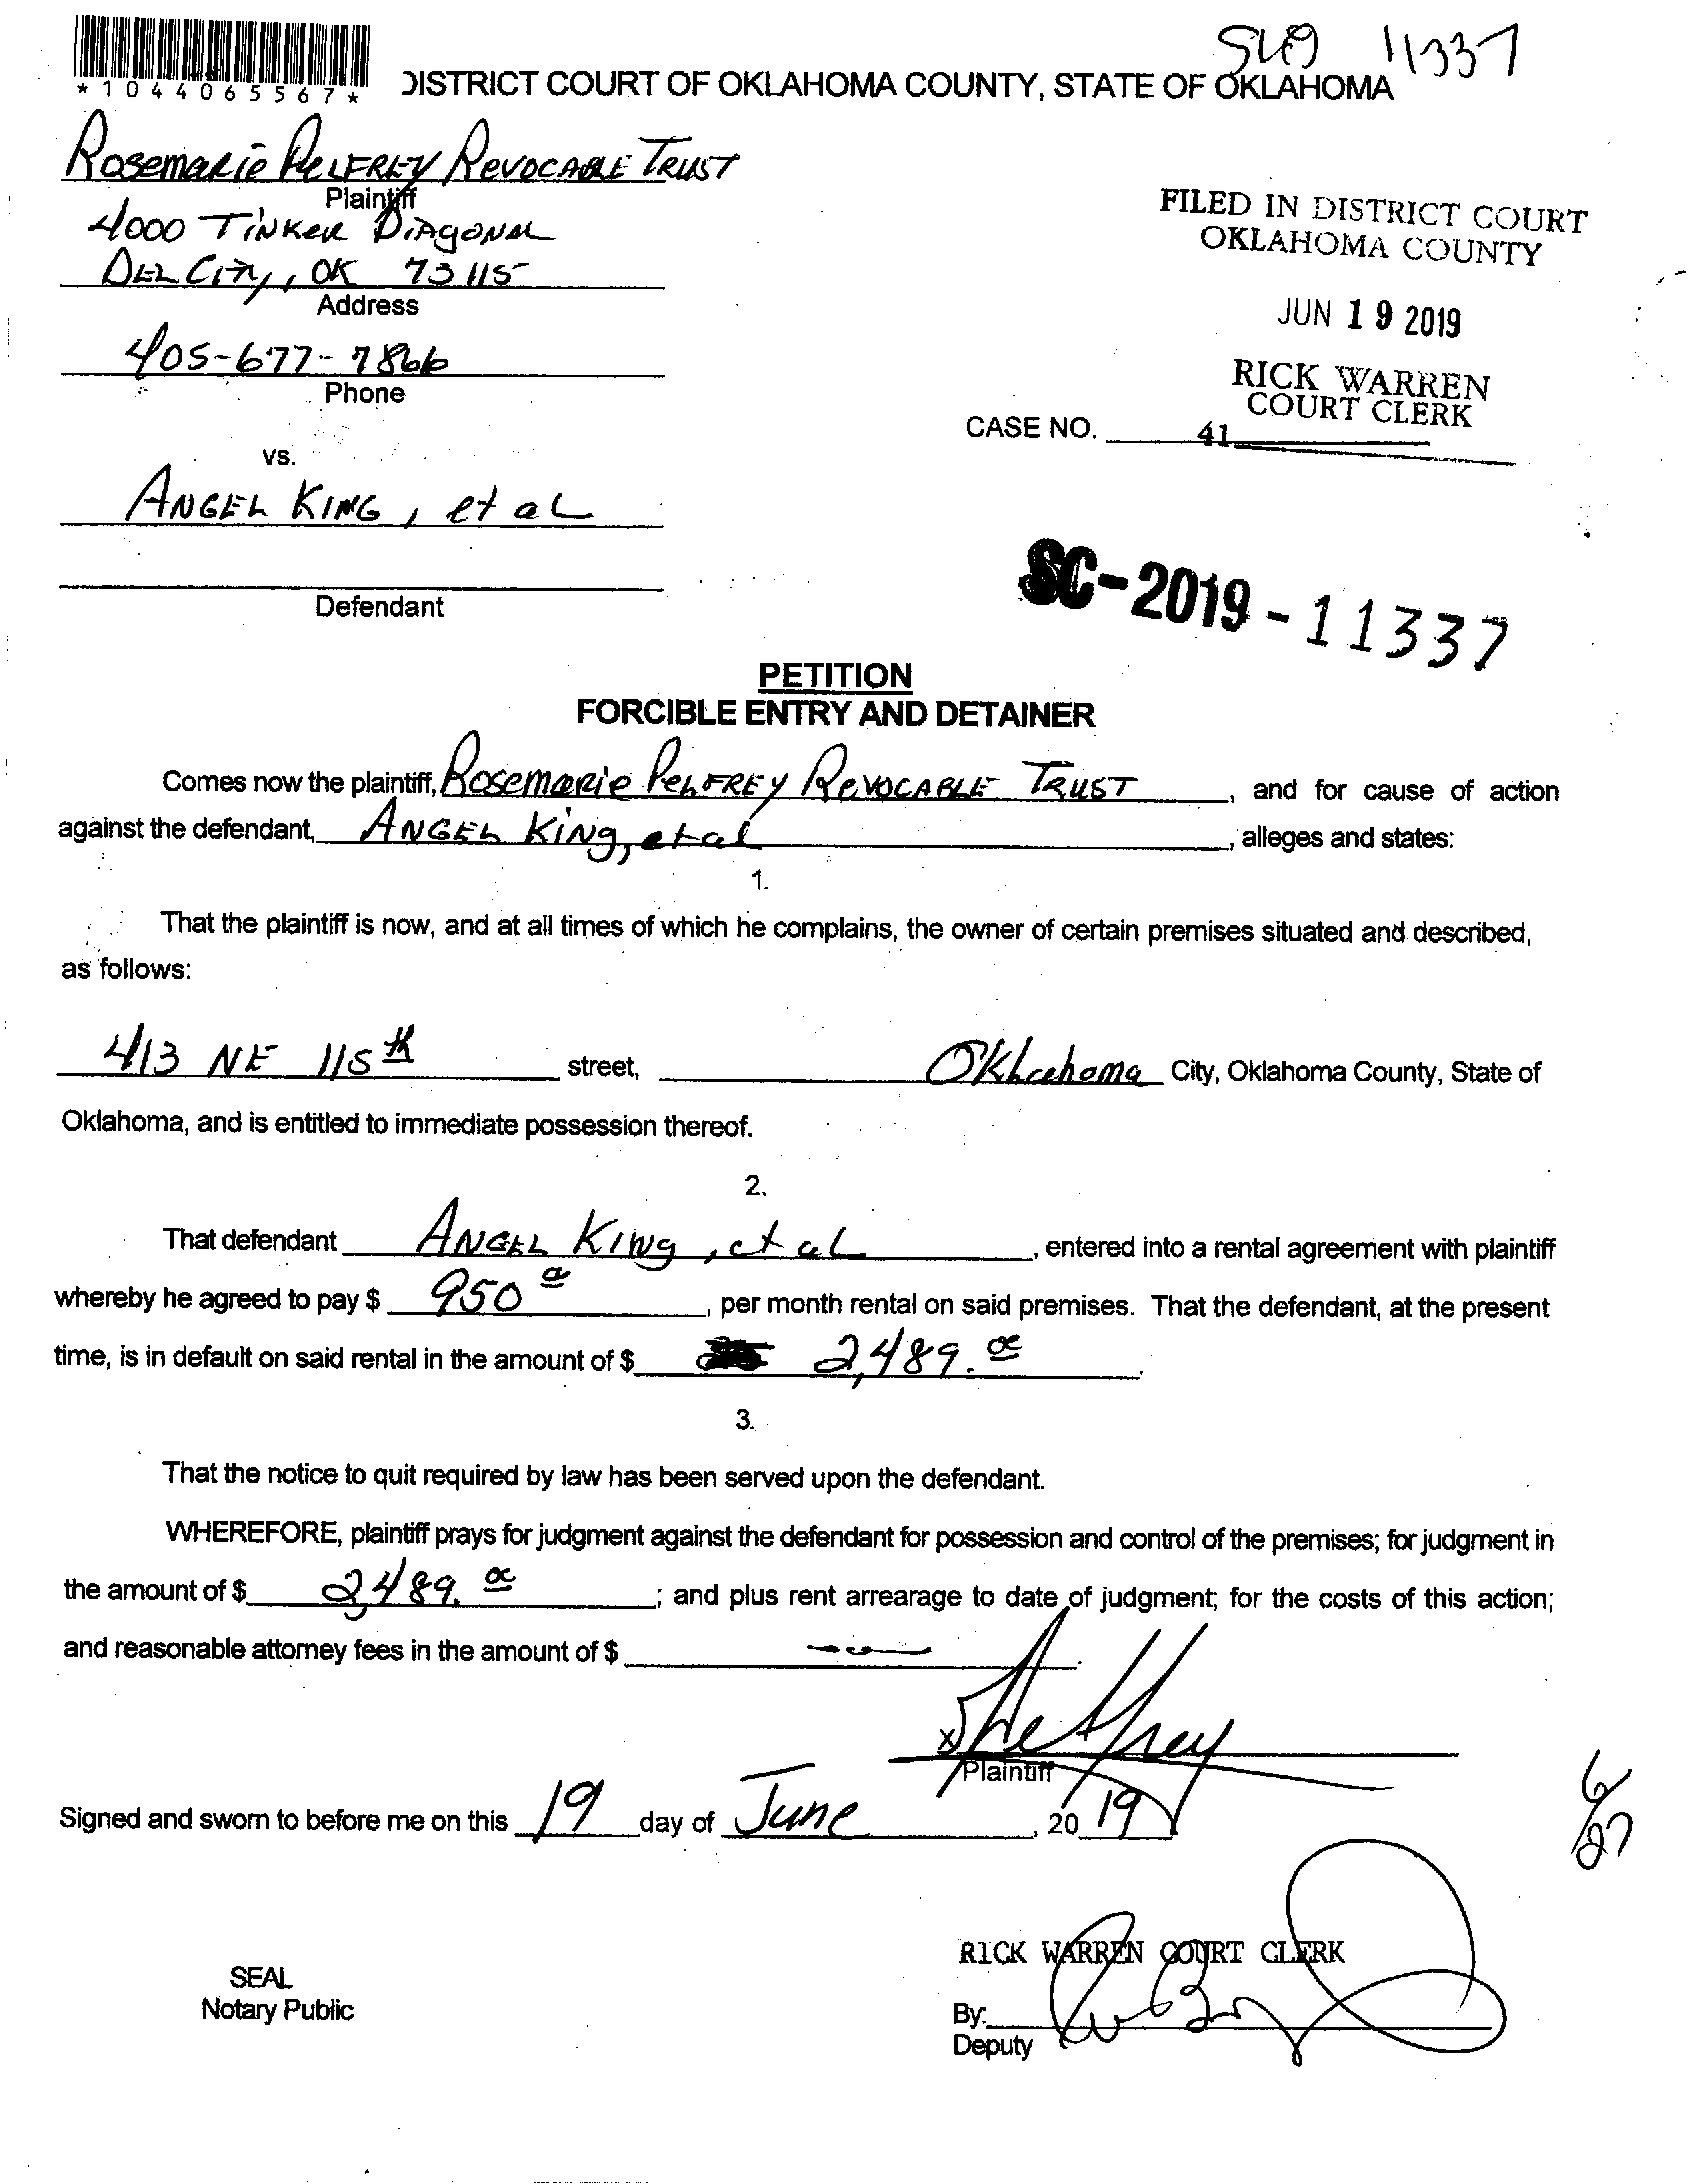 *1044065567*
DISTRICT COURT OF OKLAHOMA COUNTY, STATE OF OKLAHOMA
11337
Rosemarie Pelfrey Revocable Trust
Plaintiff
4000 Tinker Diagonal
Del City, OK 73115
Address
405-677-7866
Phone
vs.
Angel King, et al
Defendant
FILED IN DISTRICT COURT
OKLAHOMA COUNTY
JUN 19 2019
RICK WARREN
COURT CLERK
CASE NO. 41
SC-2019-11337
PETITION
FORCIBLE ENTRY AND DETAINER
Comes now the plaintiff, Rosemarie Pelfrey Revocable Trust, and for cause of action
against the defendant, Angel King, et al, alleges and states:
1.
That the plaintiff is now, and at all times of which he complains, the owner of certain premises situated and described,
as follows:
413 NE 115th street, Oklahoma City, Oklahoma County, State of
Oklahoma, and is entitled to immediate possession thereof.
2.
That defendant Angel King, et al, entered into a rental agreement with plaintiff
whereby he agreed to pay $ 950, per month rental on said premises. That the defendant, at the present
time, is in default on said rental in the amount of $ 2,489.
3.
That the notice to quit required by law has been served upon the defendant.
WHEREFORE, plaintiff prays for judgment against the defendant for possession and control of the premises; for judgment in
the amount of $ 2,489. ; and plus rent arrearage to date of judgment; for the costs of this action;
and reasonable attorney fees in the amount of $
x
Plaintiff
Signed and sworn to before me on this 19 day of June, 20 19
6/27
RICK WARREN COURT CLERK
SEAL
Notary Public
By:
Deputy